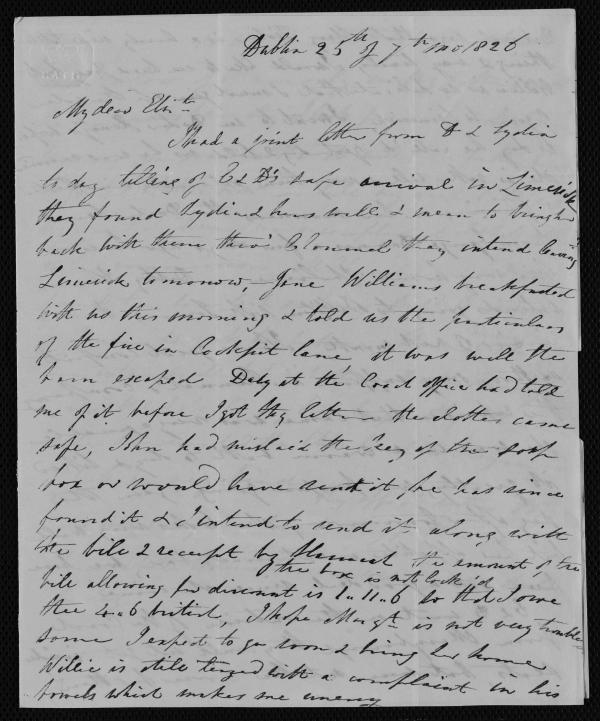 Dublin 25th of 7th mo 1826
My dear Elizth
I had a joint letter from D & Lydia
to day telling of safe arrival in Limerick
they found Lydia & hers well & mean to bring her
back with them thro' Clonmel they intend leaving
Limerick tomorrow, - Jane Williams breakfasted
with us this morning & told us the particulars
of the fire in Cockpit lane it was well the
barn escaped Daly at the Coach office had told
me of it before I got thy letter the clothes came
safe, John had mislaid the key of the soap
box or would have sent it, he has since
found it & I intend to send it along with
the bill & receipt by the amount of the
the box is not lock'd
bill allowing for discount is 1..11..6 so that I owe
thee 4..6 british, I hope Margt is not very trouble
some I expect to go soon & bring her home
Willie is still teazed with a complaint in his
bowels which makes me uneasy